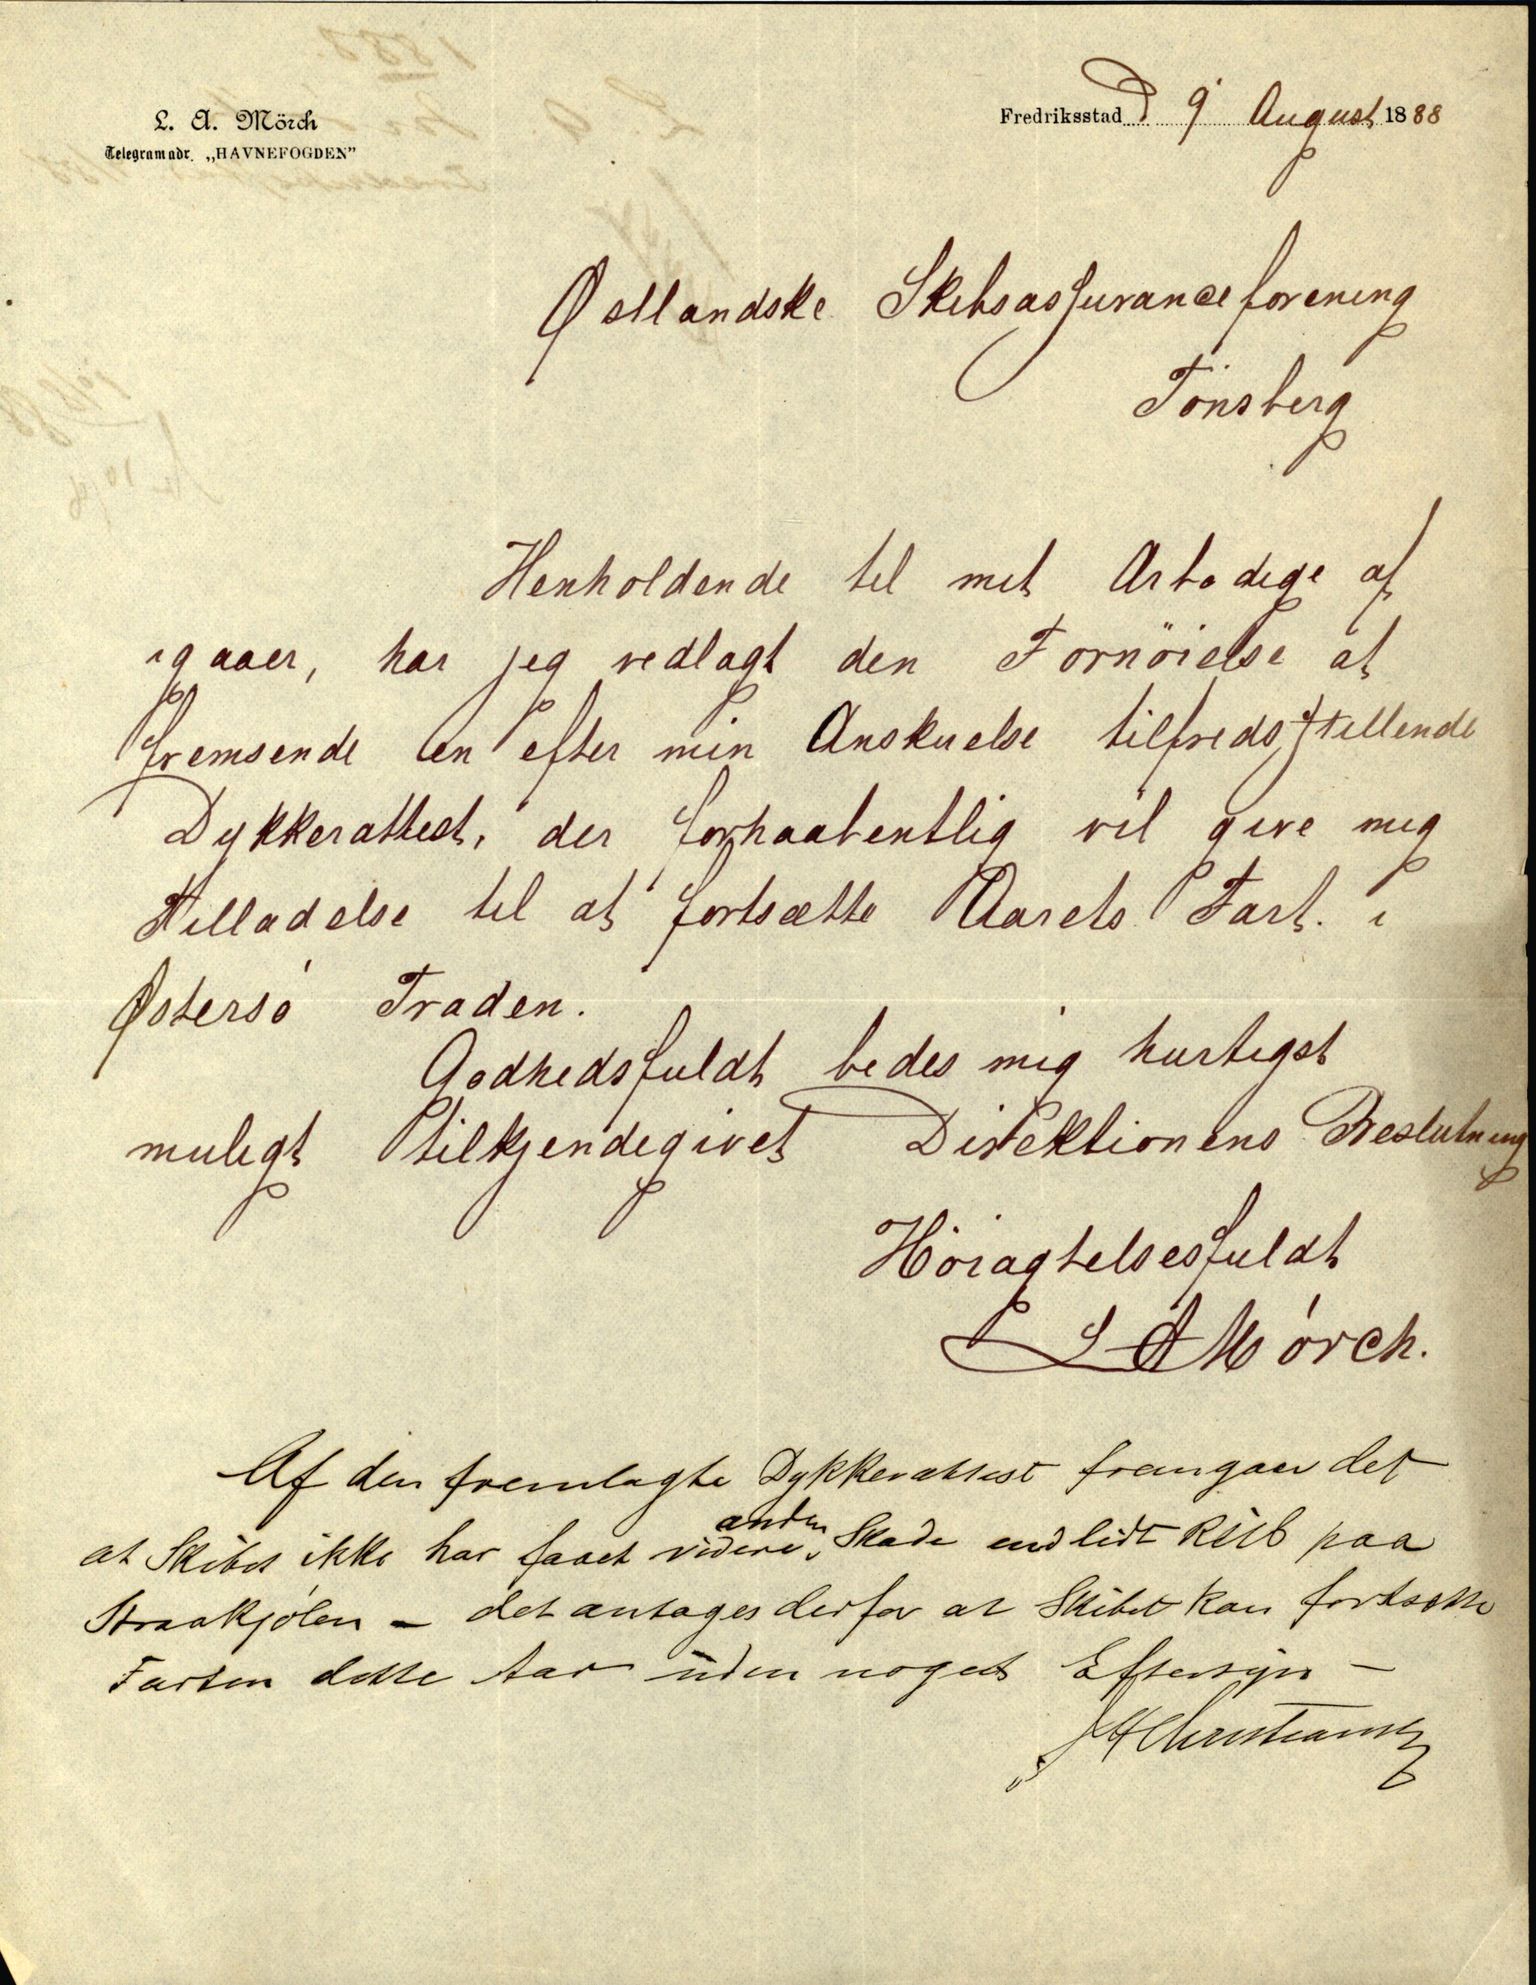 L. A. Mörch
Telegramadr. „HAVNEFOGDEN”
Fredriksstad D 9 August 1888
Østlandske Skibsassuranceforening
Tönsberg
Henholdende til mit Ærbødige af
igaaer, har jeg vedlagt den Fornöielse at
fremsende en efter min Anskuelse tilfredsstillende
Dykkerattest, der forhaabentlig vil give mig
Tilladelse til at fortsætte Aarets Fart i
Østersö Traden.
Godhedsfuldt bedes mig hurtigst
muligt tilkjendegivet Direktionens Beslutning
Höiagtelsesfuldt
L A Mörch.
Af den fremlagte Dykkerattest fremgaar det
anden
at Skibet ikke har faaet videre Skade end lidt Rib paa
Straakjölen – det antages derfor at Skibet kan fortsætte
Farten dette Aar uden noget Eftersyn –
Christiansen